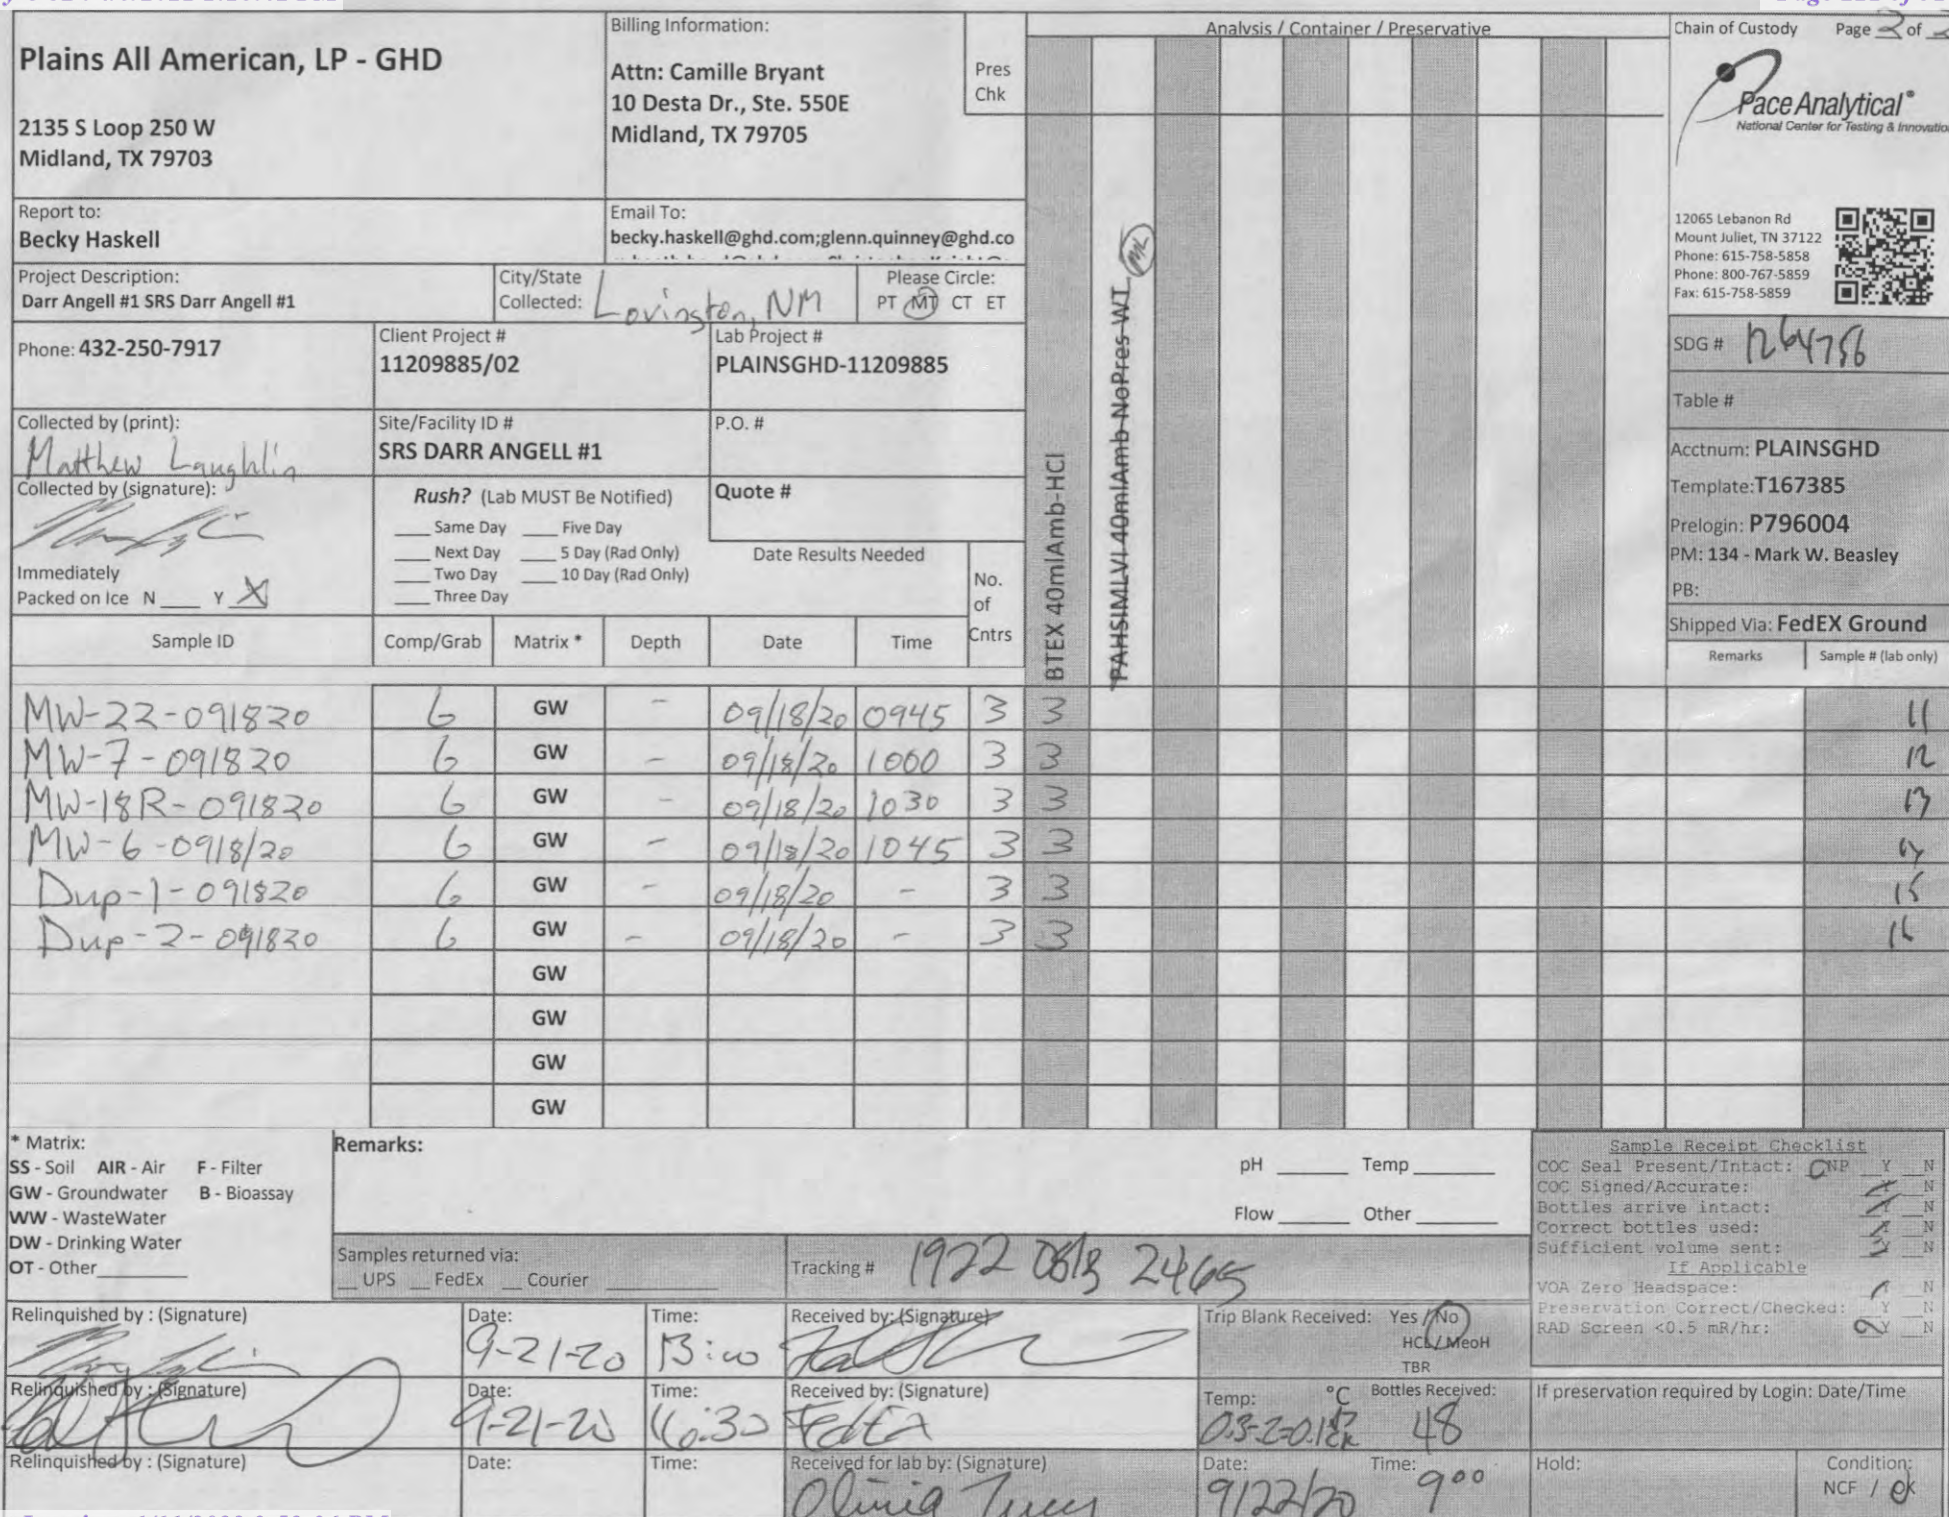 Plains All American, LP - GHD
2135 S Loop 250 W
Midland, TX 79703
Billing Information:
Attn: Camille Bryant
10 Desta Dr., Ste. 550E
Midland, TX 79705
Pres
Chk
Analysis / Container / Preservative
Chain of Custody Page 2 of
Pace Analytical®
National Center for Testing & Innovation
12065 Lebanon Rd
Mount Juliet, TN 37122
Phone: 615-758-5858
Phone: 800-767-5859
Fax: 615-758-5859
Report to:
Becky Haskell
Email To:
becky.haskell@ghd.com;glenn.quinney@ghd.co
Project Description:
Darr Angell #1 SRS Darr Angell #1
City/State
Collected: Lovington, NM
Please Circle:
PT MT CT ET
Phone: 432-250-7917
Client Project #
11209885/02
Lab Project #
PLAINSGHD-11209885
Collected by (print):
Matthew Laughlin
Site/Facility ID #
SRS DARR ANGELL #1
P.O. #
Collected by (signature):
Rush? (Lab MUST Be Notified)
___ Same Day ___ Five Day
___ Next Day ___ 5 Day (Rad Only)
___ Two Day ___ 10 Day (Rad Only)
___ Three Day
Quote #
Date Results Needed
Immediately
Packed on Ice N ___ Y X
No.
of
Cntrs
BTEX 40mlAmb-HCl
PAHSIMLVI 40mlAmb-NoPres-WT ML
SDG # 1264756
Table #
Acctnum: PLAINSGHD
Template:T167385
Prelogin: P796004
PM: 134 - Mark W. Beasley
PB:
Shipped Via: FedEX Ground
Sample ID Comp/Grab Matrix * Depth Date Time Remarks Sample # (lab only)
MW-22-091820 G GW - 09/18/20 0945 3 3 11
MW-7-091820 G GW - 09/18/20 1000 3 3 12
MW-18R-091820 G GW - 09/18/20 1030 3 3 13
MW-6-0918/20 G GW - 09/18/20 1045 3 3 14
Dup-1-091820 G GW - 09/18/20 - 3 3 15
Dup-2-091820 G GW - 09/18/20 - 3 3 16
GW
GW
GW
GW
* Matrix:
SS - Soil AIR - Air F - Filter
GW - Groundwater B - Bioassay
WW - WasteWater
DW - Drinking Water
OT - Other
Remarks:
pH ___ Temp ___
Flow ___ Other ___
Samples returned via:
__ UPS __ FedEx __ Courier
Tracking # 1922 0818 2465
Sample Receipt Checklist
COC Seal Present/Intact: NP Y N
COC Signed/Accurate: Y N
Bottles arrive intact: Y N
Correct bottles used: Y N
Sufficient volume sent: Y N
If Applicable
VOA Zero Headspace: Y N
Preservation Correct/Checked: Y N
RAD Screen <0.5 mR/hr: Y N
Relinquished by : (Signature)
Date: 9-21-20
Time: 13:00
Received by: (Signature)
Trip Blank Received: Yes / No
HCL / MeoH
TBR
Relinquished by : (Signature)
Date: 9-21-20
Time: 16:30
Received by: (Signature)
FedEx
Temp: °C
Bottles Received:
48
If preservation required by Login: Date/Time
Relinquished by : (Signature)
Date:
Time:
Received for lab by: (Signature)
Olivia
Date: 9/22/20
Time: 900
Hold:
Condition:
NCF / OK